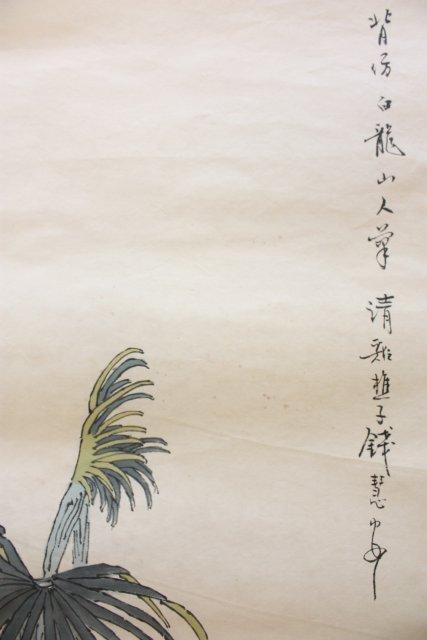 背仿白龍山人筆 清谿樵子錢慧安